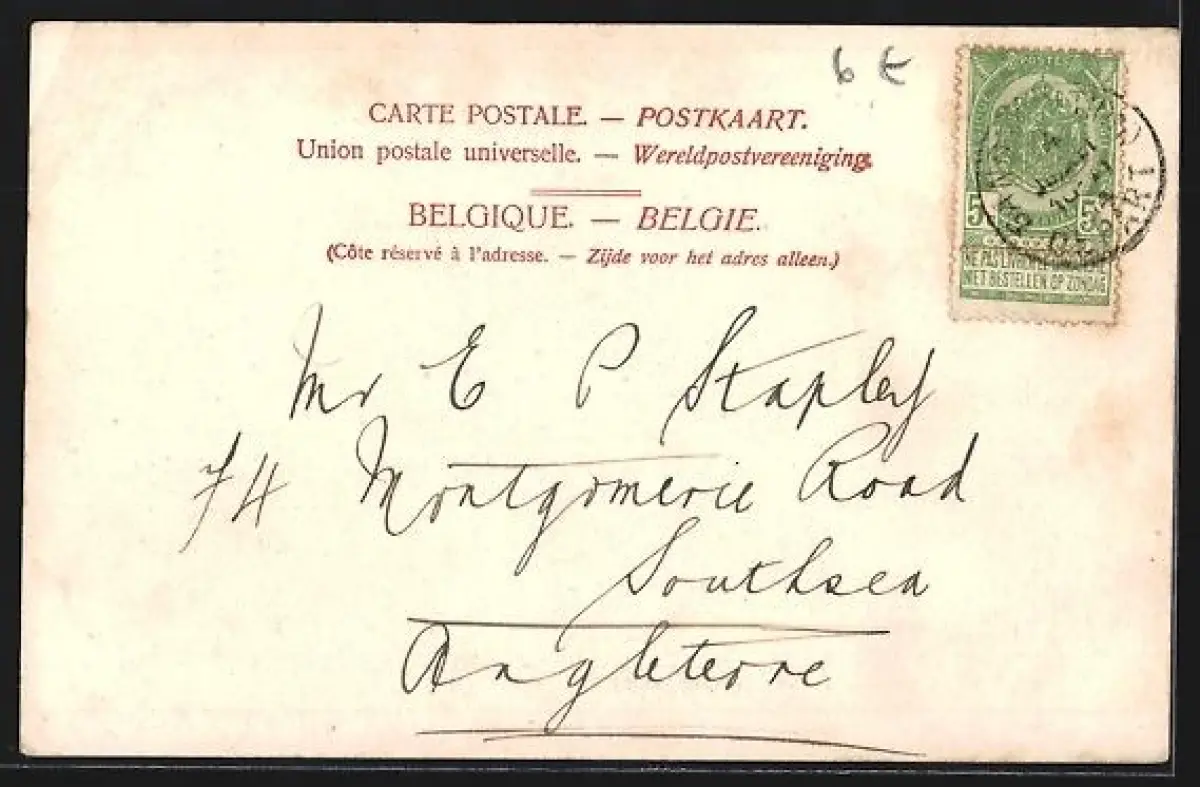 6 €
CARTE POSTALE. — POSTKAART.
Union postale universelle. — Wereldpostvereeniging.
BELGIQUE. — BELGIE.
(Côte réservé à l'adresse. — Zijde voor het adres alleen.)
POSTES
5 5
NE PAS LIVRER LE
NIET BESTELLEN OP ZONDAG
GAND
DEPART
Mr E P Stapley
74 Montgomerie Road
Southsea
Angleterre